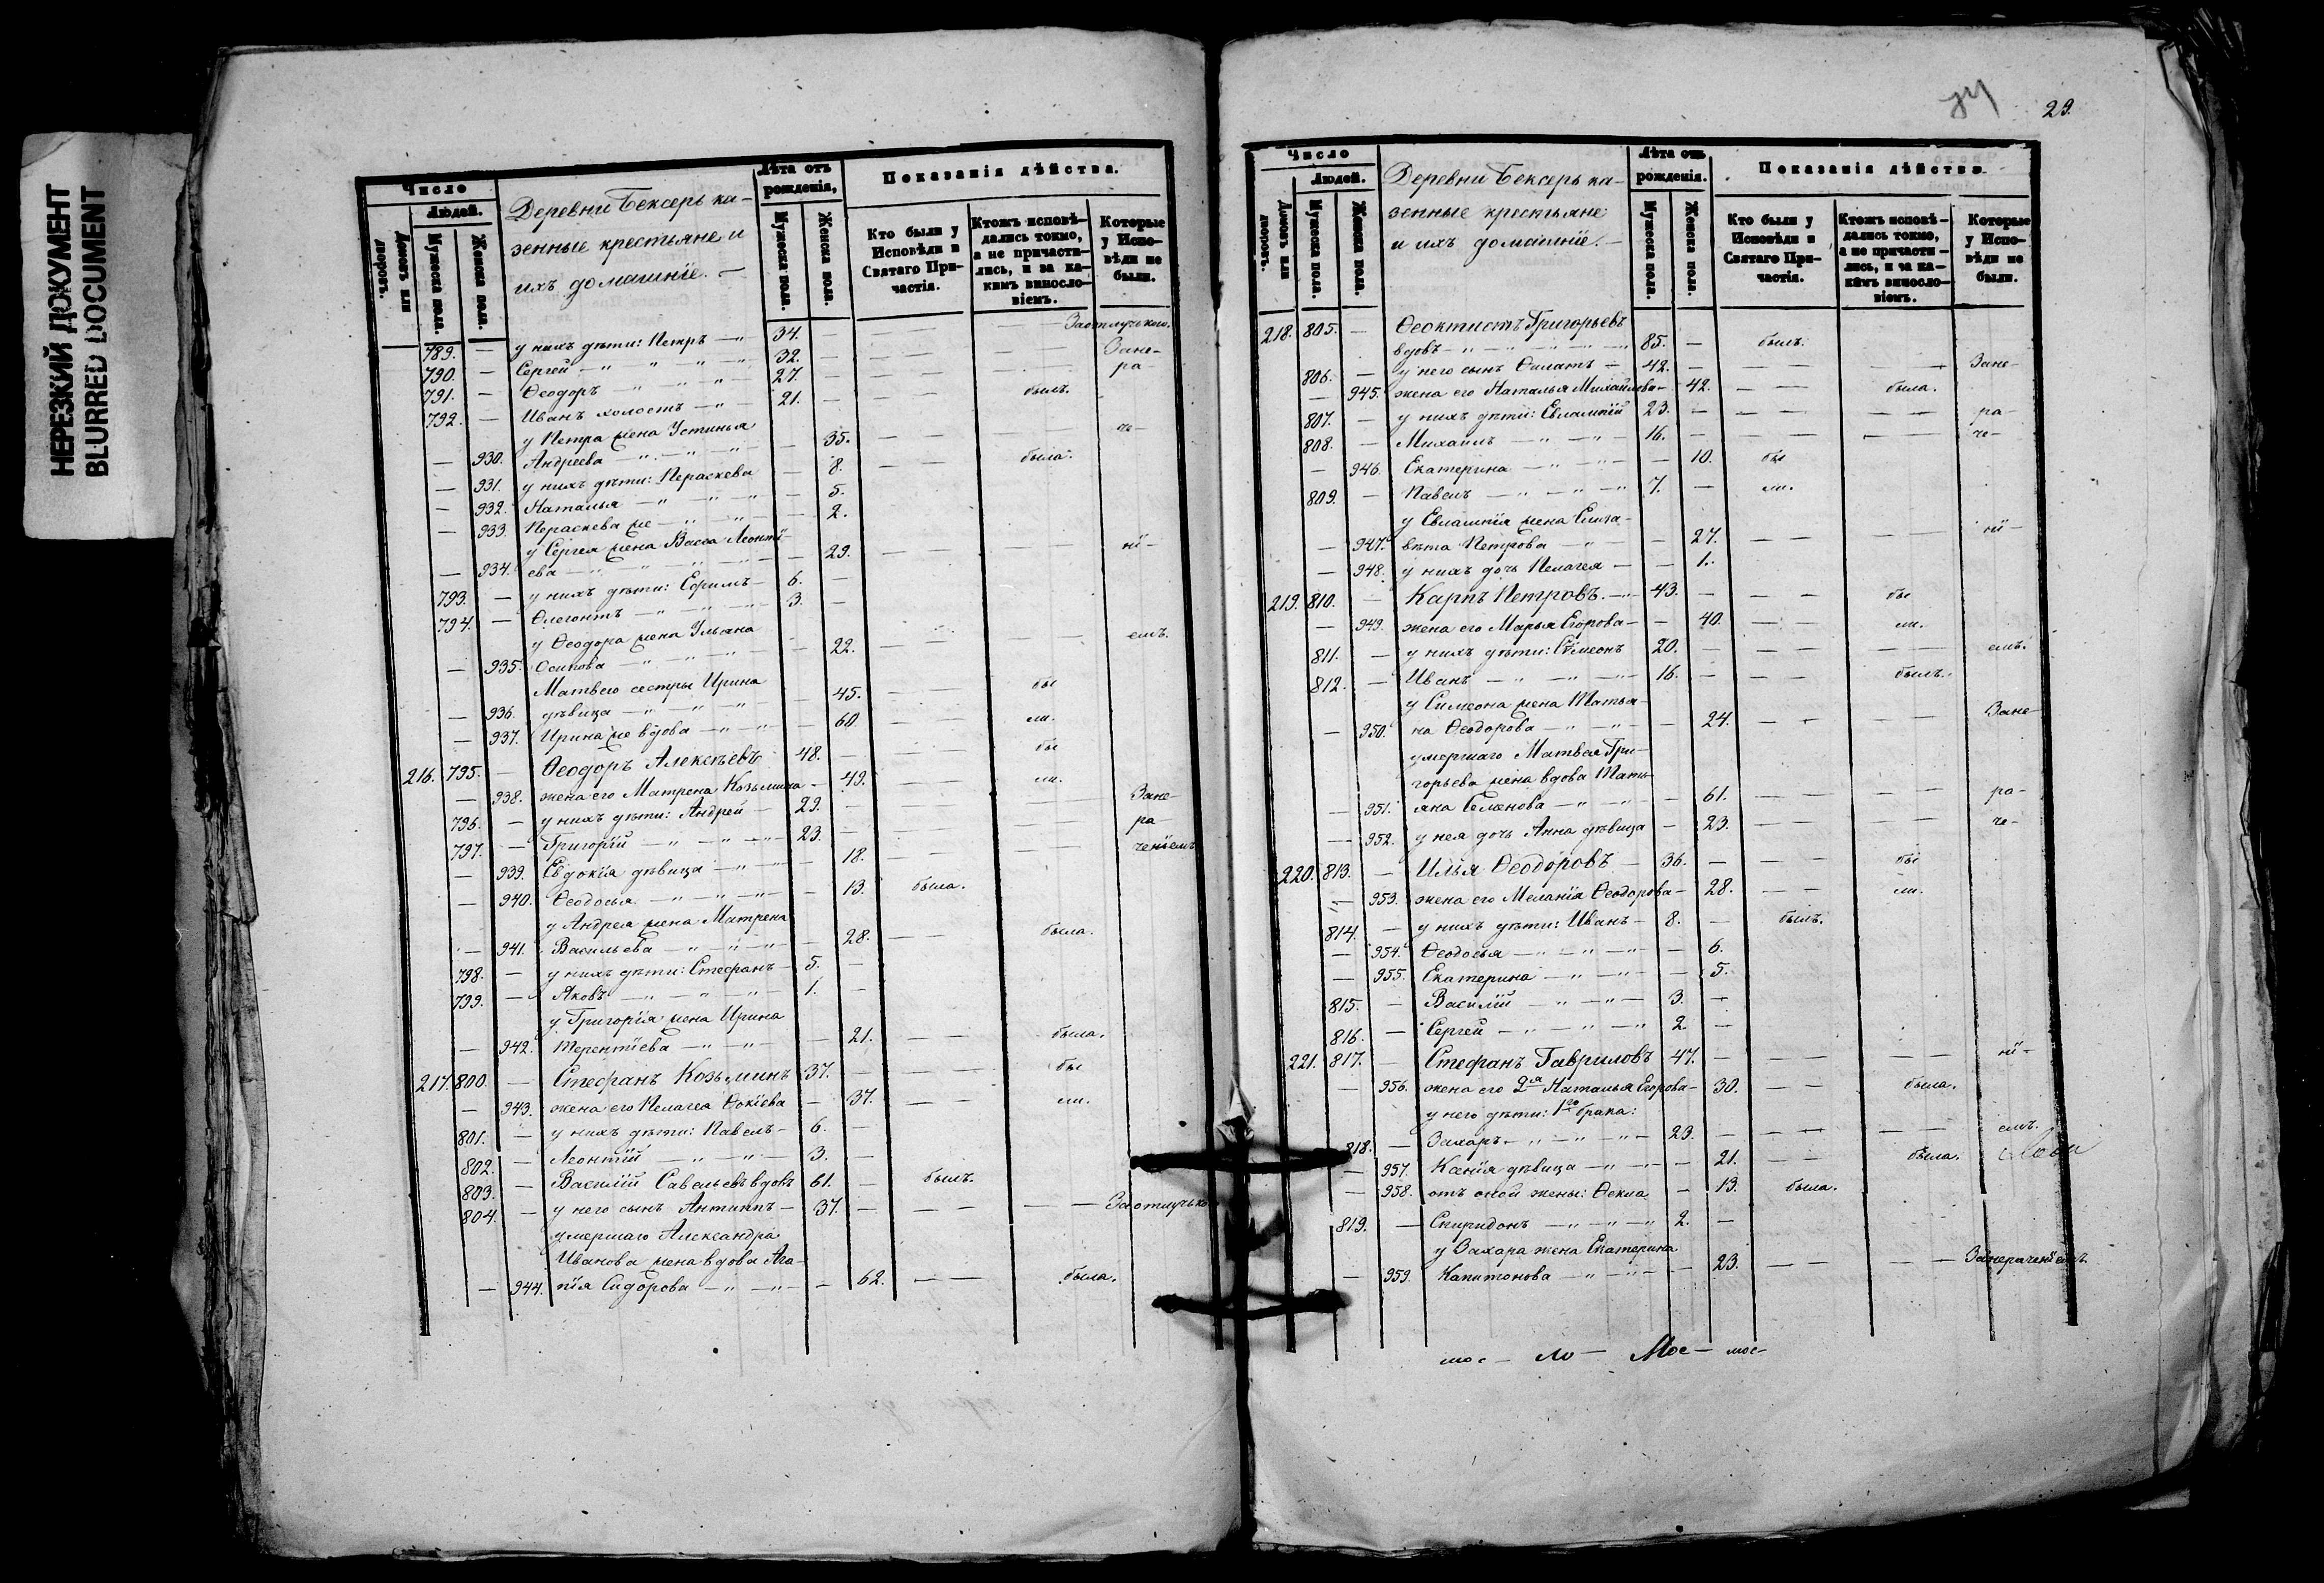 НЕРЕЗКИЙ ДОКУМЕНТ
BLURRED DOCUMENT
Число
Людей.
Домовъ или дворовъ.
Мужеска пола.
Женска пола.
Деревни Бексерь ка-
зенные крестьяне и
ихъ домашніе. —
Лѣта отъ рожденія,
Мужеска пола.
Женска пола.
Показанія дѣйства.
Кто были у Исповѣди и Святаго При-частія.
Ктожъ исповѣ-дались токмо, а не причасти-лись, и за ка-кимъ винослo-віемъ.
Которые у Испо-вѣди не были.
789. — у нихъ дѣти: Петръ — 34. — — Заотлучкою.
790. — Сергей — " — " — " 32. — — — Зане-
791. — Ѳеодоръ " " " 27. — — — ра-
792. — Иванъ холостъ — " — 21. — — былъ.
у Петра жена Устинья
— 930. Андреева — " — " — " — 35. — — че-
— 931. у нихъ дѣти: Пераскева — 8. — — была.
— 932. Наталья — " — " — " — 5.
— 933. Пераскева же — " — " — 2.
у Сергея жена Васса Леонті-
— 934. ева — " — " — " — 29. — — ні-
793. — у нихъ дѣти: Ефимъ — 6. —
794. — Ѳлегонтъ — " — " — " 3. —
у Ѳеодора жена Ульяна
— 935. Осипова — " — " — " — 22. — — — емъ.
Матвея сестры Ирина
— 936. дѣвица — " — " — " — 45. — — бы
— 937. Ирина же вдова — " — " — 60. — — ли.
216. 795. — Ѳеодоръ Алексѣевъ 48. — — — бы
— 938. жена его Матрена Козьмина — 49. — — ли.
796. — у нихъ дѣти: Андрей — 29. — — — Зане-
797. — Григорій — " — " — " 23. — — — ра-
— 939. Евдокія дѣвица — " — " — 18. — — ченіемъ
— 940. Ѳеодосья — " — " — " — 13. была.
у Андрея жена Матрена
— 941. Васильева — " — " — " — 28. — — была.
798. — у нихъ дѣти: Стефанъ — 5. —
799. — Яковъ — " — " — " 1. —
у Григорія жена Ирина
— 942. Терентіева — " — " — — 21. — — была.
217. 800. — Стефанъ Козьминъ 37. — — — бы
— 943. жена его Пелагея Ѳокіева — 37. — — ли.
801. — у нихъ дѣти: Павелъ — 6. —
802. — Леонтій — " — " — 3. —
803. — Василій Савельевъ вдовъ 61. — былъ.
804. — у него сынъ Антипъ — 37. — — — — Заотлучко
умершаго Александра
Иванова жена вдова Ага-
— 944. пія Сидорова — " — " — — 62. — — была.
29.
Число
Людей.
Домовъ или дворовъ.
Мужеска пола.
Женска пола.
Деревни Бексерь ка-
зенные крестьяне
и ихъ домашніе. —
Лѣта отъ рожденія.
Мужеска пола.
Женска пола.
Показанія дѣйства.
Кто были у Исповѣди и Святаго При-частія.
Ктожъ исповѣ-дались токмо, а не причасти-лись, и за ка-кимъ винослo-віемъ.
Которые у Испо-вѣди не были.
218. 805. — Ѳеоктистъ Григорьевъ
вдовъ — " — " — " — " 85. — былъ.
806. — у него сынъ Филатъ — 42. — — — — Зане-
— 945. жена его Наталья Михайлова — 42. — — была.
807. — у нихъ дѣти: Евлампій 23. — — — — ра-
808. — Михаилъ — " — " — 16. — — — — че-
— 946. Екатерина — " — " — — 10. бы
809. — Павелъ — " — " — " 7. — ли.
у Евлампія жена Елиза-
— 947. вѣта Петрова — " — — 27. — — — ні-
— 948. у нихъ дочь Пелагея — — 1.
219. 810. — Карпъ Петровъ. — " 43. — — — бы
— 949. жена его Марья Егорова — — 40. — — ли.
811. — у нихъ дѣти: Симеонъ 20. — — — — емъ.
812. — Иванъ — " — " — " 16. — — — былъ.
у Симеона жена Татья-
— 950. на Ѳеодорова — " — " — 24. — — — Зане-
умершаго Матвея Гри-
горьева жена вдова Тать-
— 951. яна Семенова — " — " — 61. — — — ра-
— 952. у нея дочь Анна дѣвица — 23. — — — че-
220. 813. — Илья Ѳеодоровъ — 36. — — — бы
— 953. жена его Меланія Ѳеодорова — 28. — — ли.
814. — у нихъ дѣти: Иванъ — 8. — былъ.
— 954. Ѳеодосья — " — " — " — 6.
— 955. Екатерина — " — " — — 5.
815. — Василій — " — " — 3. —
816. — Сергей — " — " — " 2. —
221. 817. — Стефанъ Гавриловъ 47. — — — — ні-
— 956. жена его 2я Наталья Егорова — 30. — — была.
у него дѣти: 1го брака:
818. — Захаръ — " — " — " 23. — — — — емъ.
— 957. Ксенія дѣвица — " — " — 21. — — была.
— 958. отъ оной жены: Ѳекла — 13. была.
819. — Спиридонъ — " — " — " 2. —
у Захара жена Екатерина
— 959. Капитонова — " — " — — 23. — — — — Занераченіемъ.